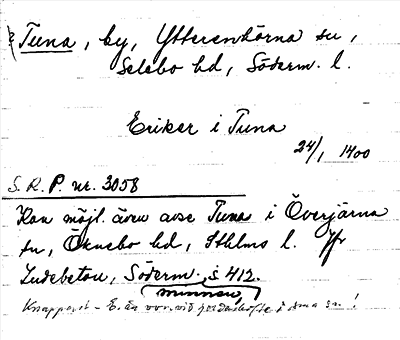 Tuna, by, Ytterenhörna sn,
Selebo hd, Söderm. l.
Eriker i Tuna
24/1 1400
S. R. P. nr. 3058
Kan möjl. även avse Tuna i Överjärna
sn, Öknebo hd, Sthlms l. Jfr
Indebetou, Söderm. s 412.
minnen,
Knappast – E. är vid i sn!